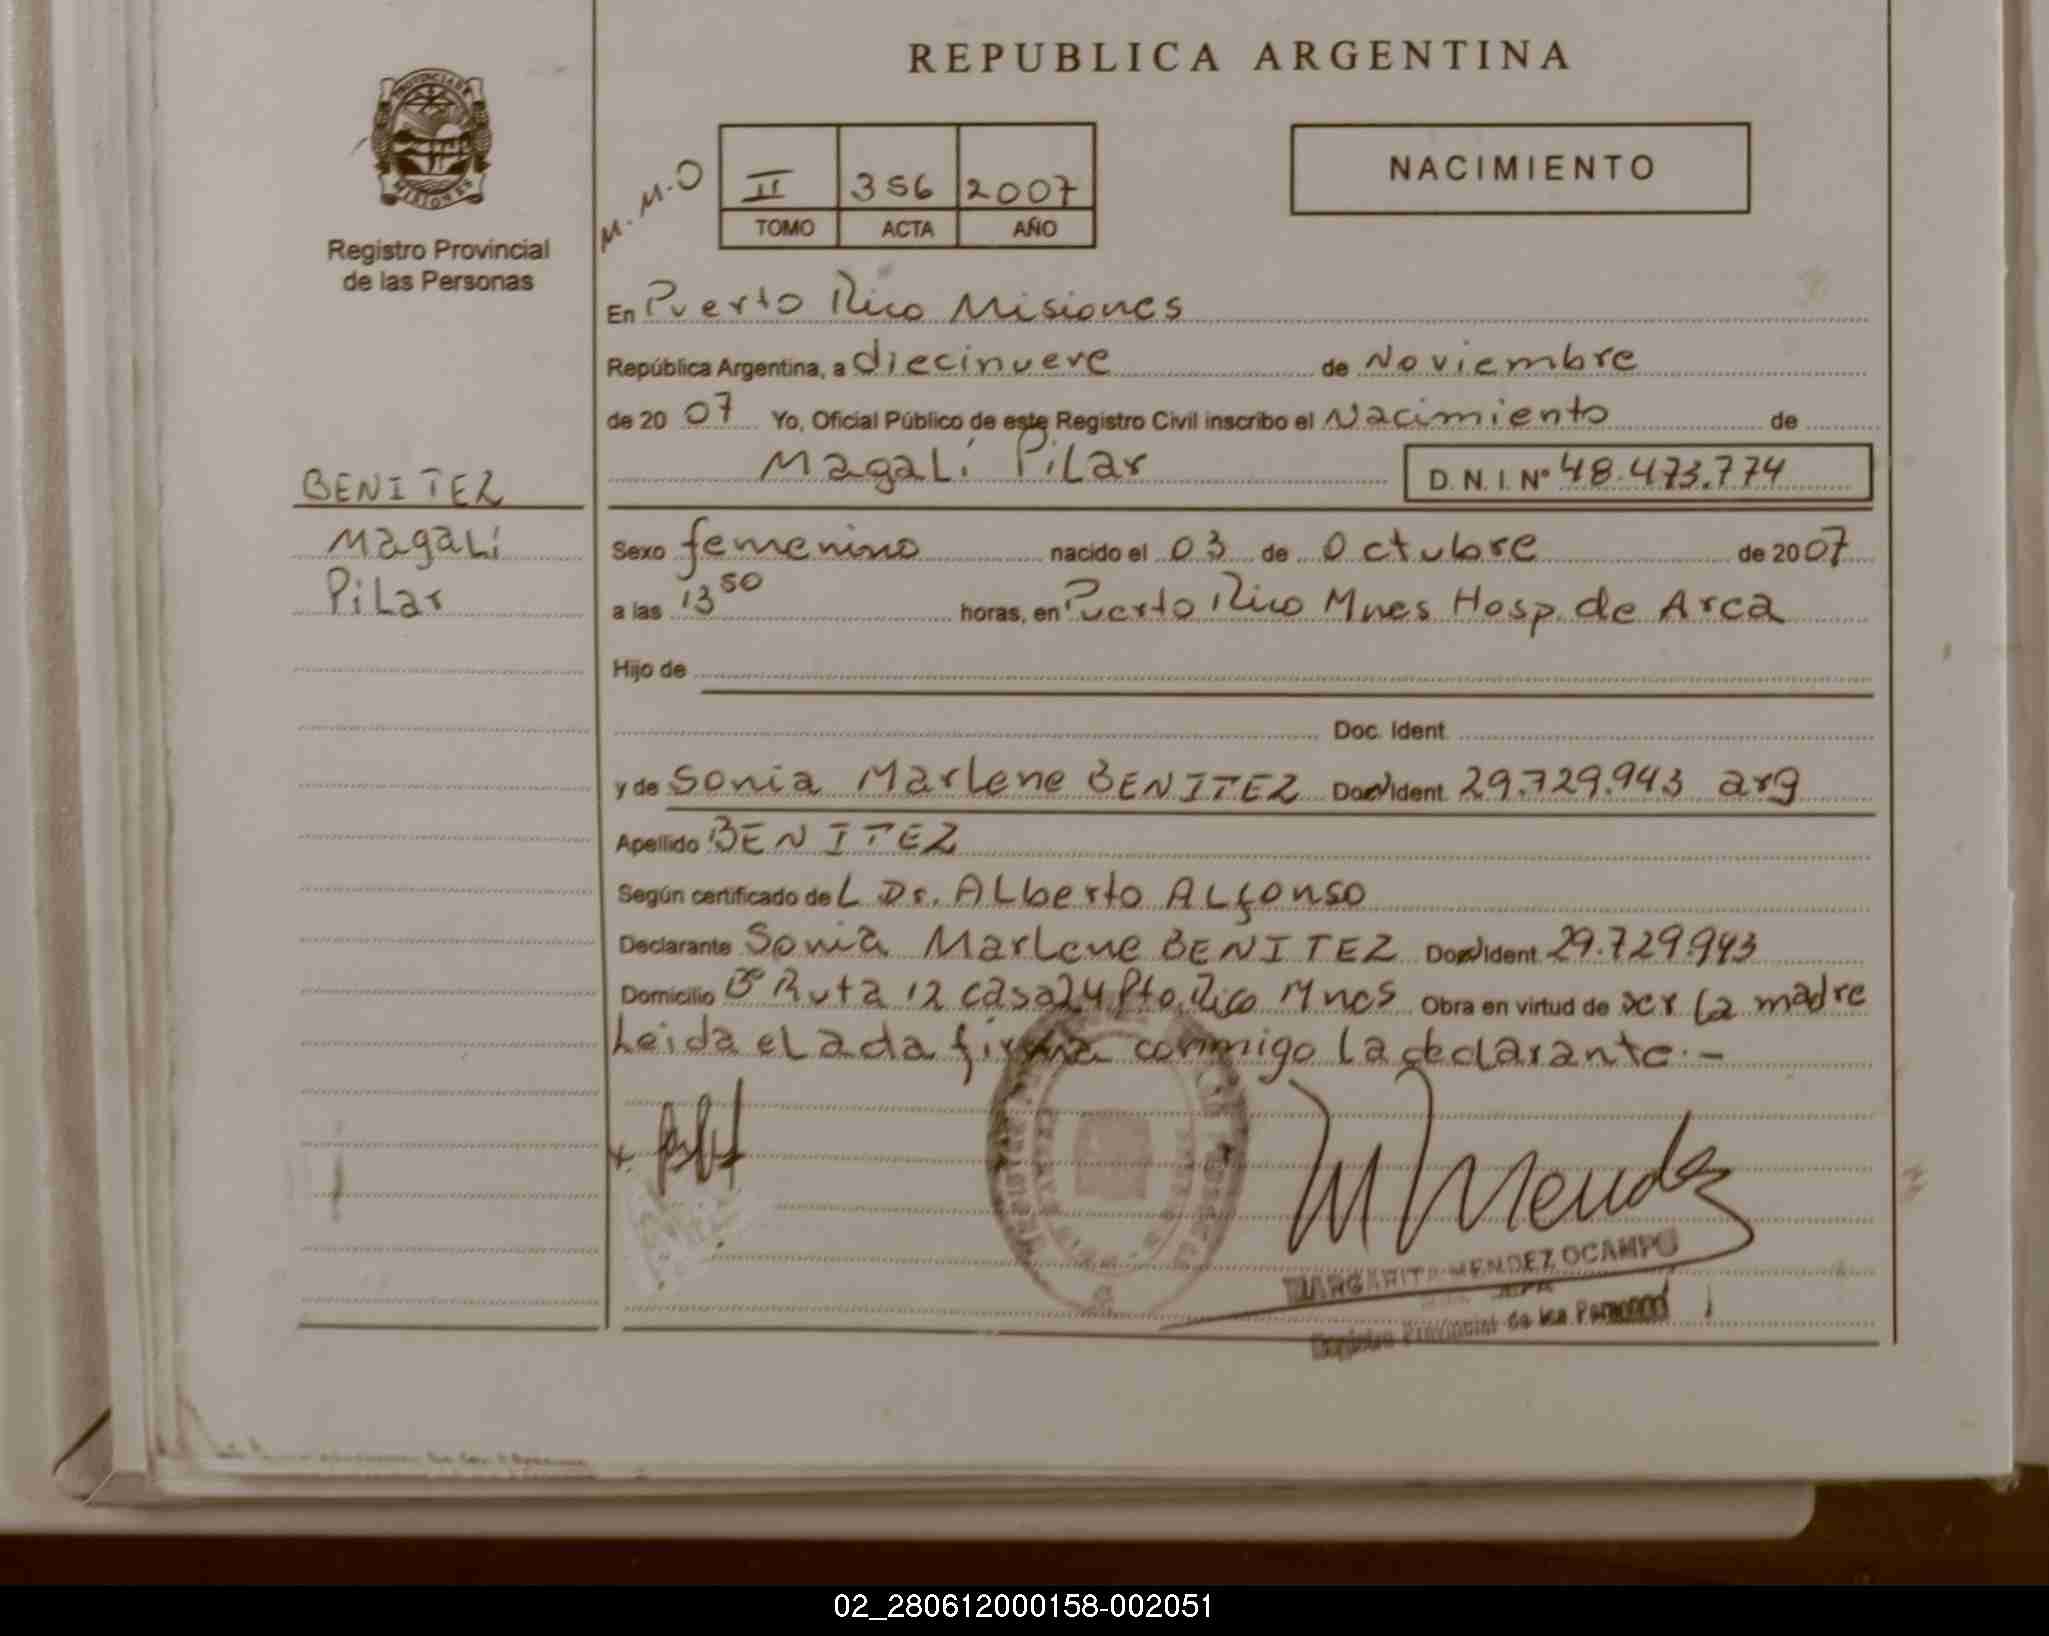 REPUBLICA ARGENTINA
PROVINCIA DE
MISIONES
Registro Provincial
de las Personas
M.M.O
II 356 2007
TOMO ACTA AÑO
NACIMIENTO
En Puerto Rico Misiones
República Argentina, a diecinueve de Noviembre
de 20 07 Yo, Oficial Público de este Registro Civil inscribo el Nacimiento de
Magalí Pilar D. N. I. Nº 48.473.774
BENITEZ
Magalí
Pilar
Sexo femenino nacido el 03 de Octubre de 20 07
a las 13 50 horas, en Puerto Rico Mnes Hosp. de Arca
Hijo de
Doc. Ident.
y de Sonia Marlene BENITEZ Doc. Ident. 29.729.943 arg
Apellido BENITEZ
Según certificado de L Dr. Alberto Alfonso
Declarante Sonia Marlene BENITEZ Doc. Ident. 29.729.943
Domicilio Bº Ruta 12 casa 24 Pto. Rico Mnes Obra en virtud de ser la madre
Leida el acta firma conmigo la declarante.-
M Mendez
MARGARITA MENDEZ OCAMPO
Registro Provincial de las Personas
02_280612000158-002051